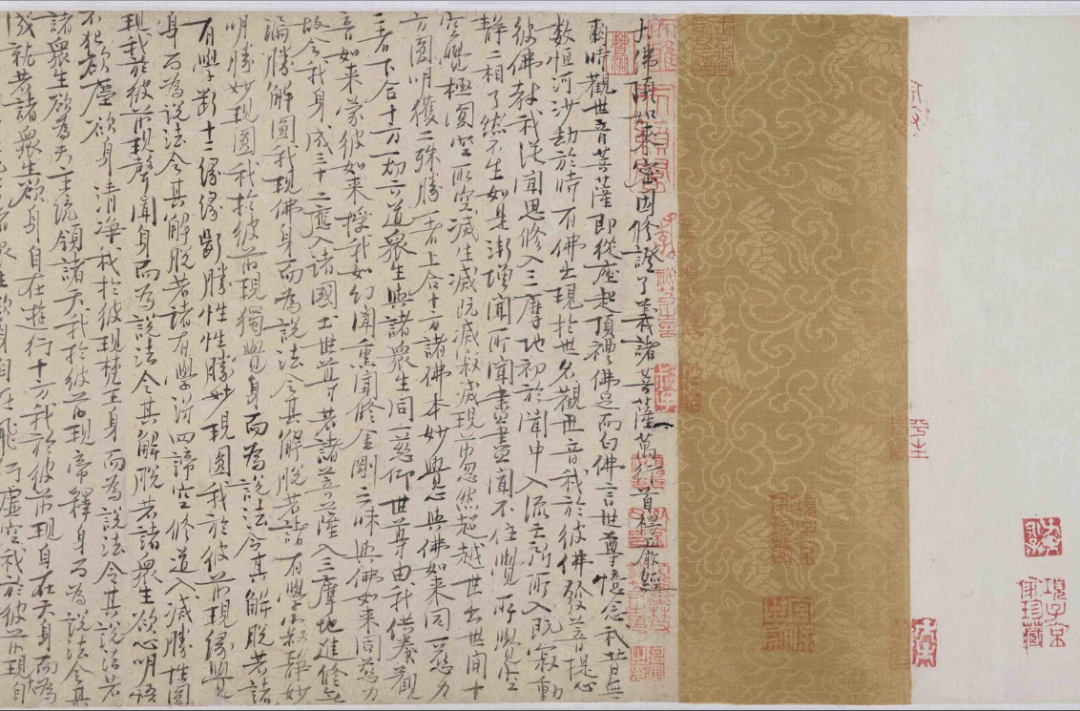 大佛頂如來密因修證了義諸菩薩萬行首楞嚴經
爾時觀世音菩薩即從座起頂禮佛足而白佛言世尊憶念我昔無
數恒河沙劫於時有佛出現於世名觀世音我於彼佛發菩提心
彼佛教我從聞思修入三摩地初於聞中入流亡所所入既寂動
靜二相了然不生如是漸增聞所聞盡盡聞不住覺所覺空
空覺極圓空所空滅生滅既滅寂滅現前忽然超越世出世間十
方圓明獲二殊勝一者上合十方諸佛本妙覺心與佛如來同一慈力
二者下合十方一切六道衆生與諸衆生同一悲仰世尊由我供養觀
音如來蒙彼如來授我如幻聞熏聞修金剛三昧與佛如來同慈力
故令我身成三十二應入諸國土世尊若諸菩薩入三摩地進修無
漏勝解圓我現佛身而為說法令其解脫若諸有學寂靜妙
明勝妙現圓我於彼前現獨覺身而為說法令其解脫若諸
有學斷十二緣緣斷勝性性勝妙現圓我於彼前現緣覺
身而為說法令其解脫若諸有學得四諦空修道入滅勝性圓
現我於彼前現聲聞身而為說法令其解脫若諸衆生欲心明悟
不犯欲塵欲身清淨我於彼現梵王身而為說法令其說法若
諸衆生欲為天主統領諸天我於彼前現帝釋身而為說法令其
成就若諸衆生欲身自在遊行十方我於彼前現自在天身而為
欲身自在飛行虛空我於彼前現自
項子京家珍藏